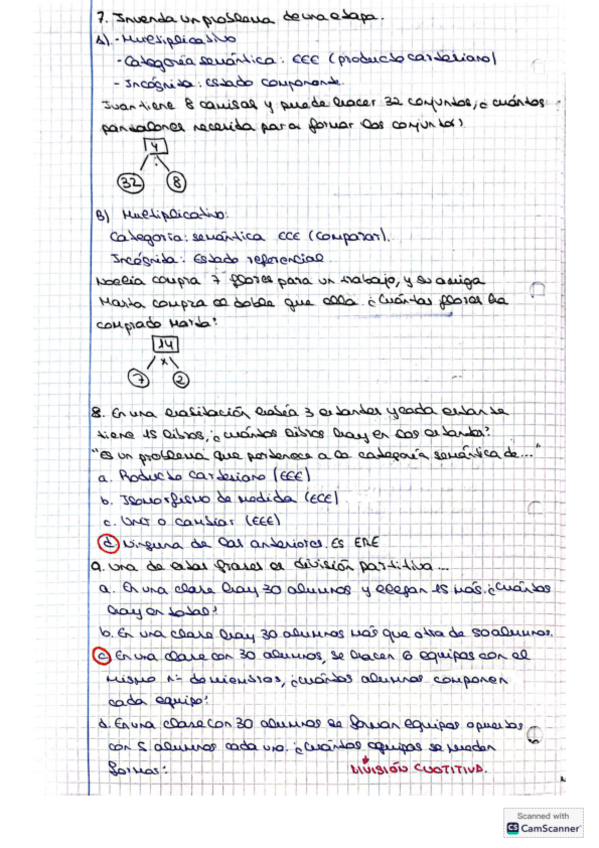 7. Inventa un problema de una etapa.
A).- Multiplicativo
- Categoría semántica: EEE (producto cartesiano)
- Incógnita: Estado componente.
Juan tiene 8 camisas y puede hacer 32 conjuntos, ¿cuántos
pantalones necesita para formar los conjuntos?
4
:
32 8
B) Multiplicativo:
Categoría: semántica ECE (comparar).
Incógnita: Estado referencial
Noelia compra 7 flores para un trabajo, y su amiga
Marta compra el doble que ella ¿Cuántas flores ha
comprado Marta?
14
x
7 2
8. En una habitación había 3 estantes y cada estante
tiene 15 libros, ¿cuántos libros hay en los estantes?
"Es un problema que pertenece a la categoría semántica de..."
a. Producto cartesiano (EEE)
b. Isomorfismo de medida (ECE)
c. Unir o cambiar (EEE)
d. Ninguna de las anteriores. ES ERE
9. Una de estas frases es división partitiva...
a. En una clase hay 30 alumnos y llegan 15 más. ¿Cuántos
hay en total?
b. En una clase hay 30 alumnos más que otra de 50 alumnos.
c. En una clase con 30 alumnos, se hacen 6 equipos con el
mismo nº de miembros, ¿cuántos alumnos componen
cada equipo?
d. En una clase con 30 alumnos se forman equipos
con 5 alumnos cada uno. ¿Cuántos equipos se pueden
formar?
DIVISIÓN CUOTITIVA.
Scanned with
CS CamScanner